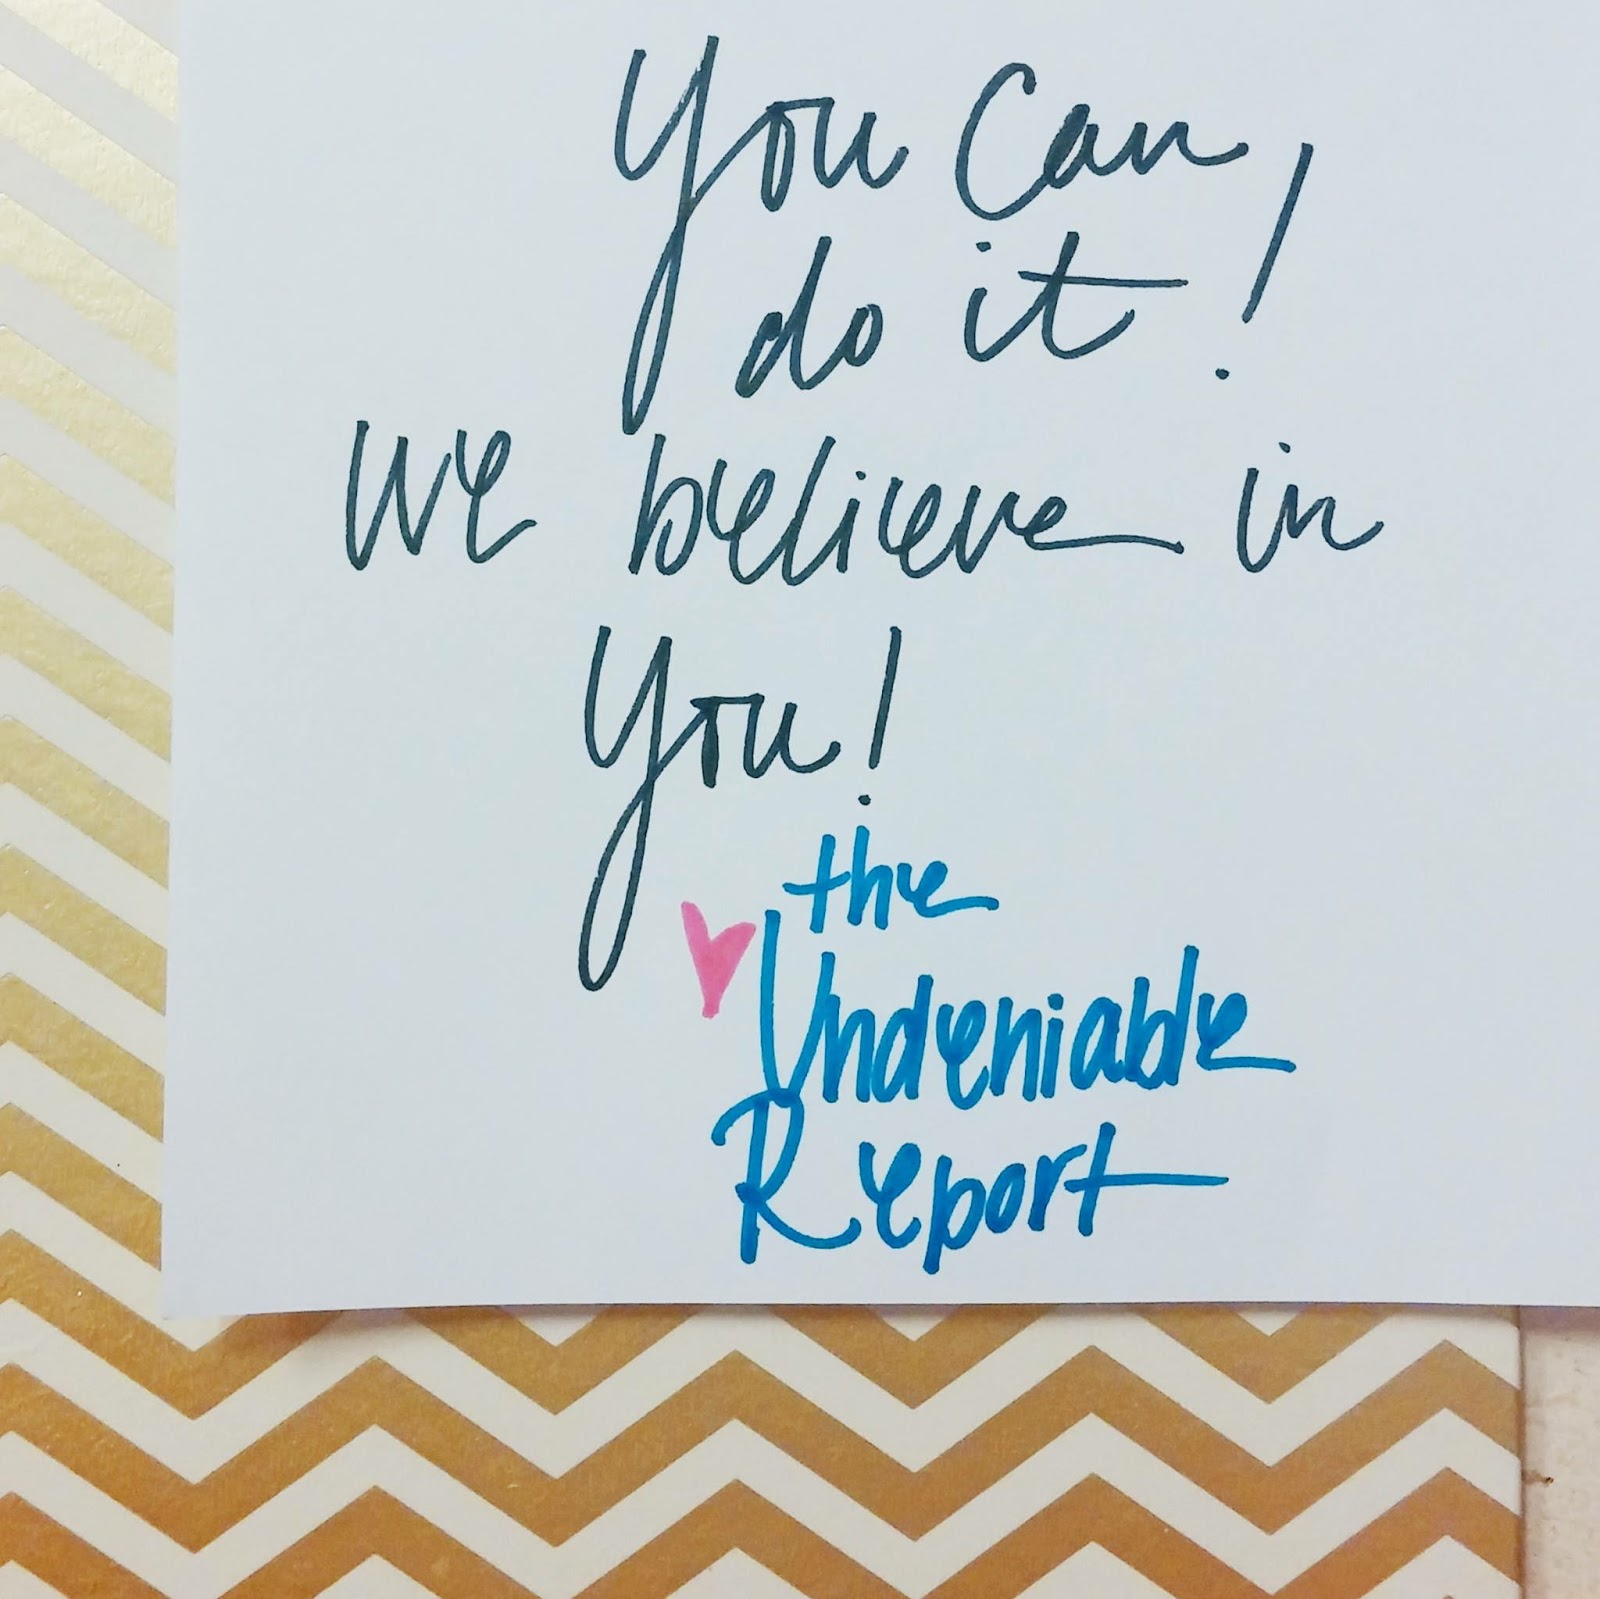 You Can
do it!
We believe in
You!
the
Undeniable
Report